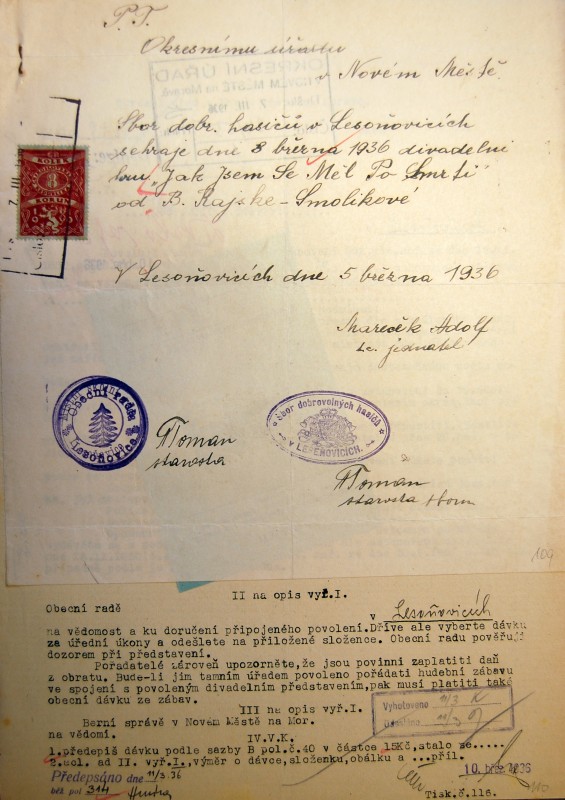 P.T.
Okresnímu úřadu
v Novém Městě.
OKRESNÍ ÚŘAD
Sbor dobr. hasičů v Lesoňovicích
sehraje dne 8 března 1936 divadelní
hru „Jak Jsem Se Měl Po Smrti"
od B. Rajske-Smolíkové
8
KORUN
V Lesoňovicích dne 5 března 1936
Mareček Adolf
t.č. jednatel
Obecní rada
Lesoňovice
Sbor dobrovolných hasičů
v LESEŇOVICÍCH.
Toman
starosta
Toman
starosta
109
II na opis vyř.I.
Obecní radě
v Lesoňovicích
na vědomost a ku doručení připojeného povolení.Dříve ale vyberte dávku
za úřední úkony a odešlete na přiložené složence. Obecní radu pověřuji
dozorem při představení.
Pořadatelé zároveň upozorněte,že jsou povinni zaplatiti daň
z obratu. Bude-li jim tamním úřadem povoleno pořádati hudební zábavu
ve spojení s povoleným divadelním představením,pak musí platiti také
obecní dávku ze zábav.
III na opis vyř.I.
Berní správě v Novém Městě na Mor.
na vědomí.
Vyhotoveno 11/3
11/3
IV.V.K.
1.předepiš dávku podle sazby B pol.č.40 v částce 15Kč,stalo se.....
2.pol. ad II. vyř.I.,výměr o dávce,složenku,obálku a ...příl.
Předepsáno dne 11/3.36
běž. pol 314
10. břez. 1936
Tisk.č.116.
110